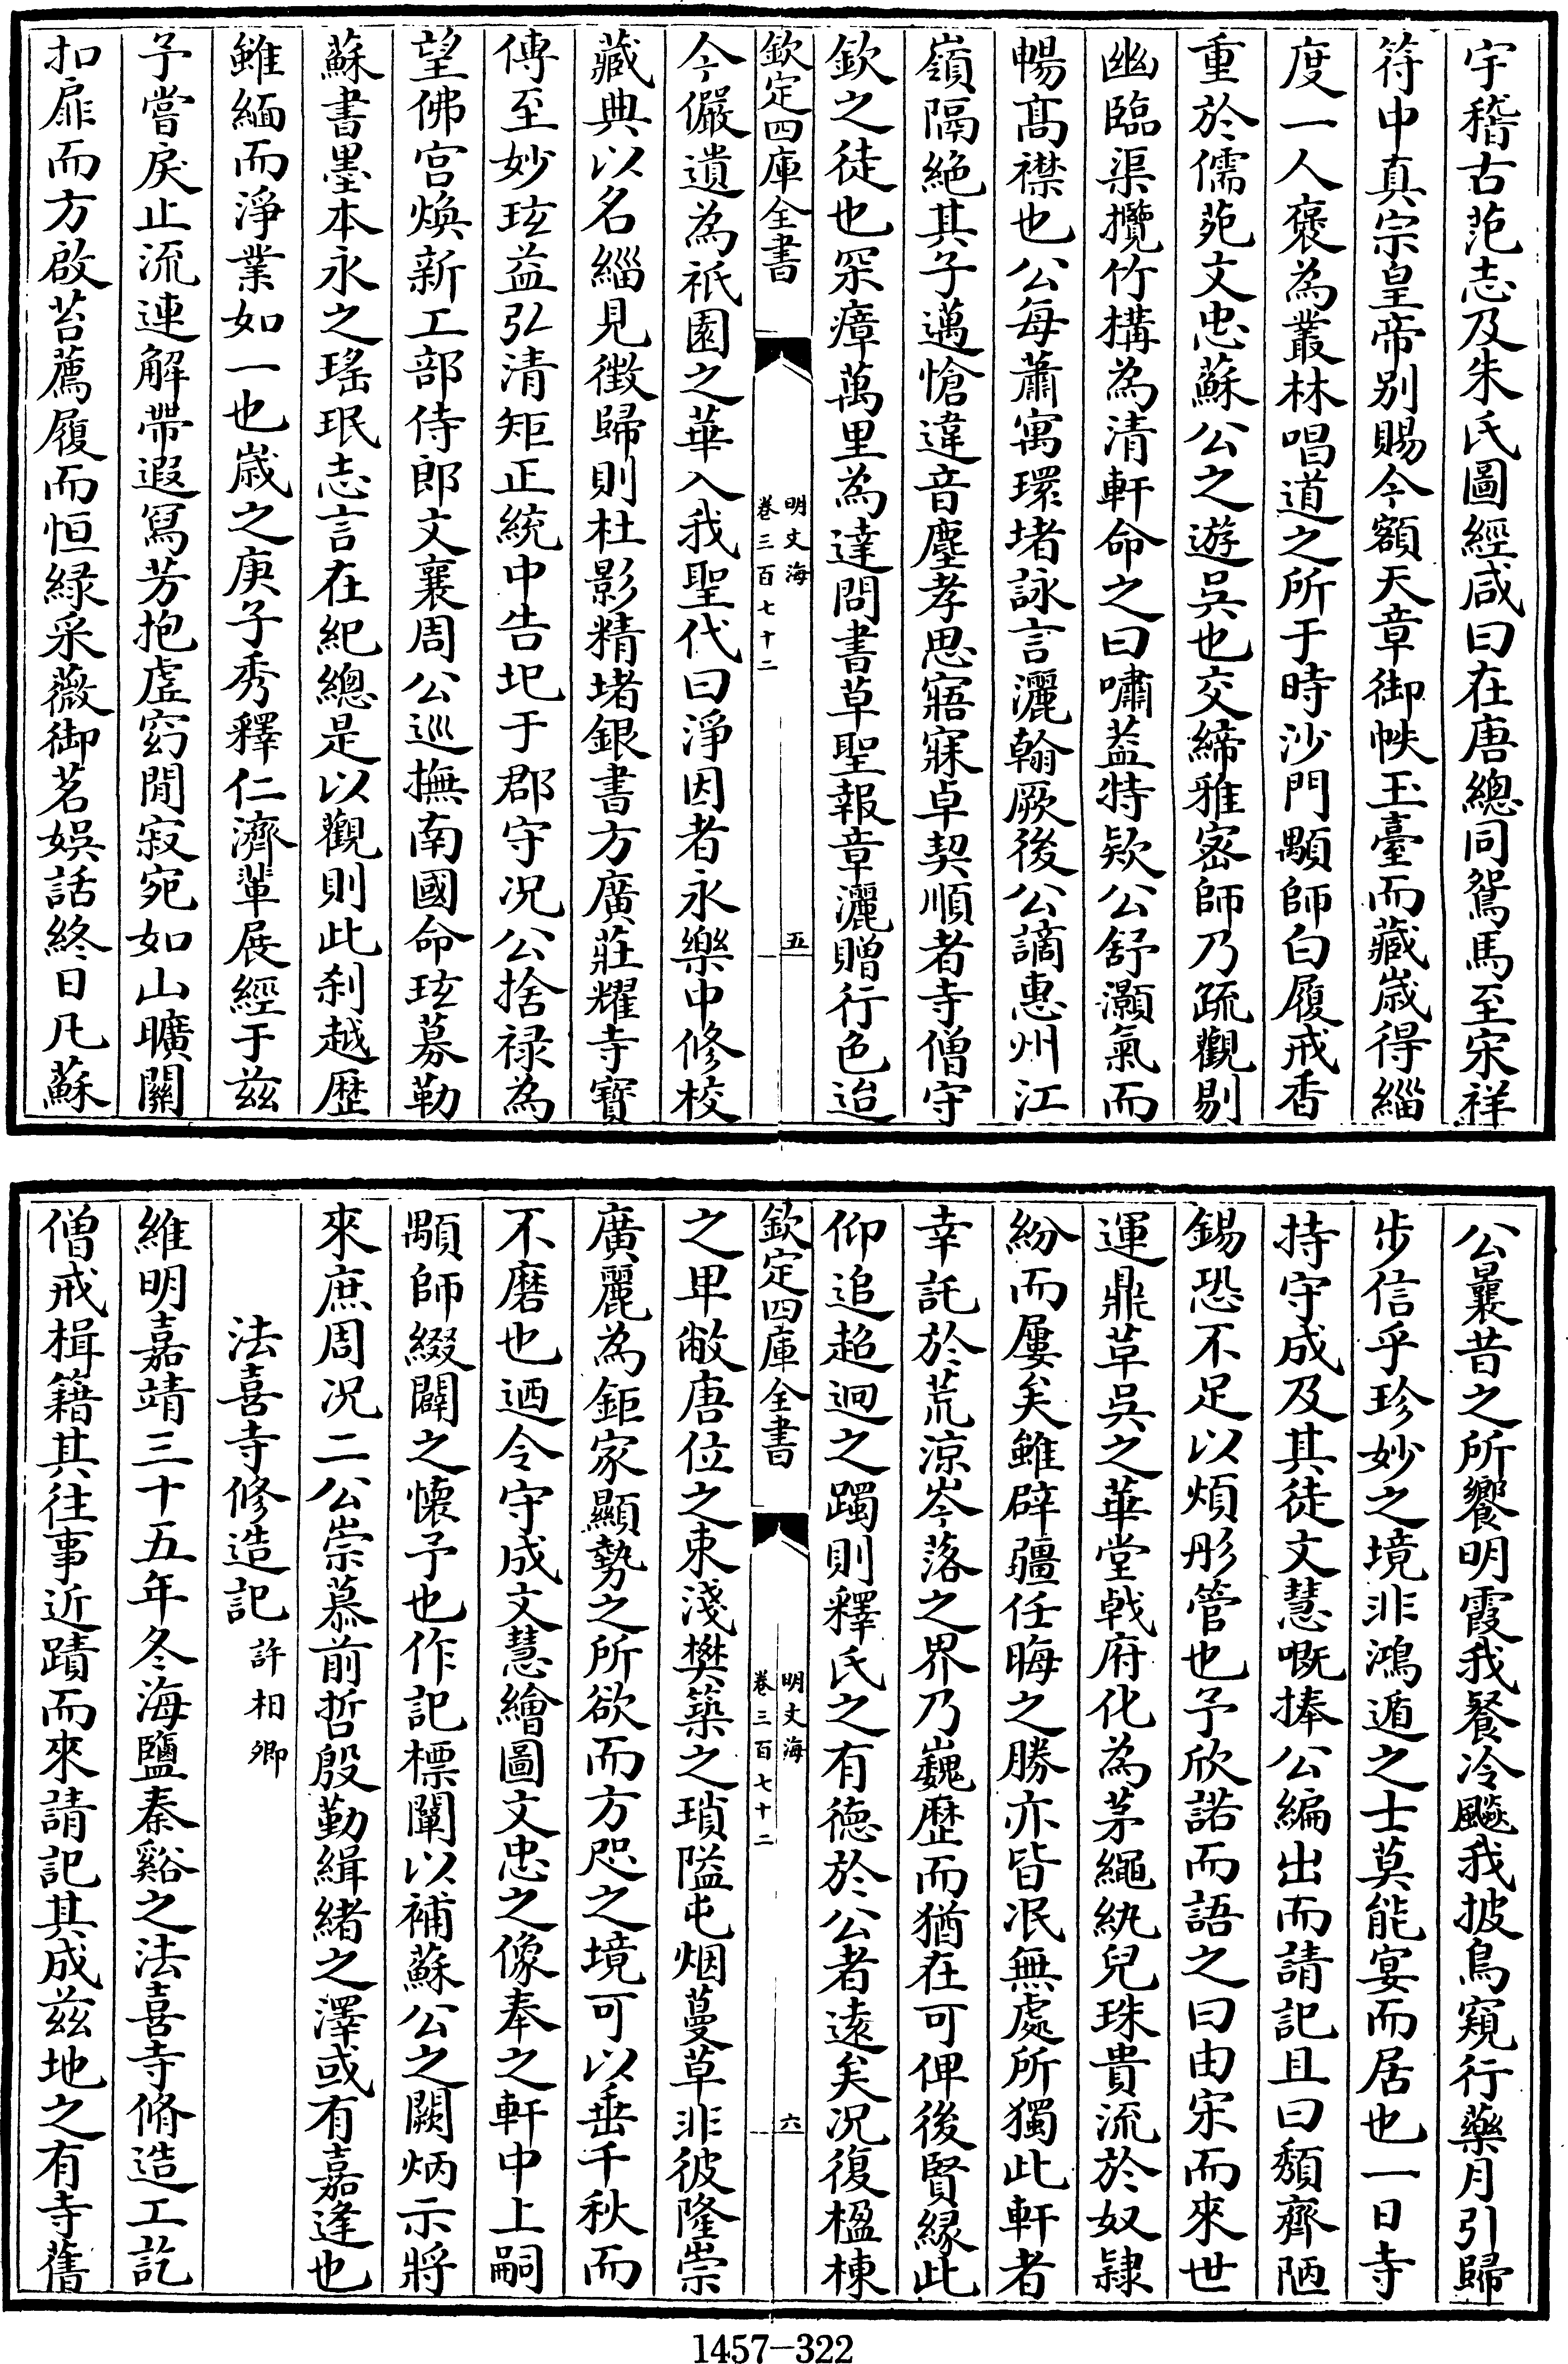 宇稽古范志及朱氏圖經咸曰在唐總同鴛馬至宋祥
符中真宗皇帝别賜今額天章御帙玉臺而藏嵗得緇
度一人褒為叢林唱道之所于時沙門顒師白履戒香
重於儒苑文忠蘇公之遊吳也交締雅宻師乃疏觀剔
幽臨渠攬竹構為清軒命之曰嘯葢特欵公舒灝氣而
暢髙襟也公每蕭寓環堵詠言灑翰厥後公謫惠州江
嶺隔絶其子邁愴違音塵孝思寤寐卓契順者寺僧守
欽之徒也罙瘴萬里為達問書草聖報章灑贈行色迨
欽定四庫全書
明文海
卷三百七十二
五
今儼遺為祇園之華入我聖代曰淨因者永樂中修校
藏典以名緇見徴歸則杜影精堵銀書方廣莊耀寺寳
傳至妙玹益弘清矩正統中告圯于郡守况公捨禄為
望佛宫煥新工部侍郎文襄周公巡撫南國命玹募勒
蘇書墨本永之瑤珉志言在紀總是以觀則此刹越歴
雖緬而淨業如一也嵗之庚子秀釋仁濟輩展經于兹
予嘗戾止流連解帶遐冩芳抱虚窈閒寂宛如山曠關
扣扉而方啟苔薦履而恒緑采薇御茗娛話終日凡蘇
公曩昔之所饗明霞我餐冷飈我披鳥窺行藥月引歸
步信乎珍妙之境非鴻遁之士莫能宴而居也一日寺
持守成及其徒文慧嘅捧公編出而請記且曰頽齊陋
錫恐不足以煩彤管也予欣諾而語之曰由宋而來世
運鼎草吳之華堂㦸府化為茅繩紈兒珠貴流於奴𨽻
紛而屢矣雖辟疆任晦之勝亦皆泯無處所獨此軒者
幸託於荒涼岑落之界乃巍歴而猶在可俾後賢縁此
仰追超迥之躅則釋氏之有德於公者逺矣况復楹棟
欽定四庫全書
明文海
卷三百七十二
六
之卑敝唐位之束淺樊築之瑣隘屯烟蔓草非彼隆崇
廣麗為鉅家顯勢之所欲而方咫之境可以垂千秋而
不磨也迺令守成文慧繪圖文忠之像奉之軒中上嗣
顒師綴闢之懐予也作記標闡以補蘇公之闕炳示將
來庶周况二公崇慕前哲殷勤緝緒之澤或有嘉逢也
法喜寺修造記 許相卿
維明嘉靖三十五年冬海鹽秦谿之法喜寺脩造工訖
僧戒楫籍其往事近蹟而來請記其成兹地之有寺舊
1457-322